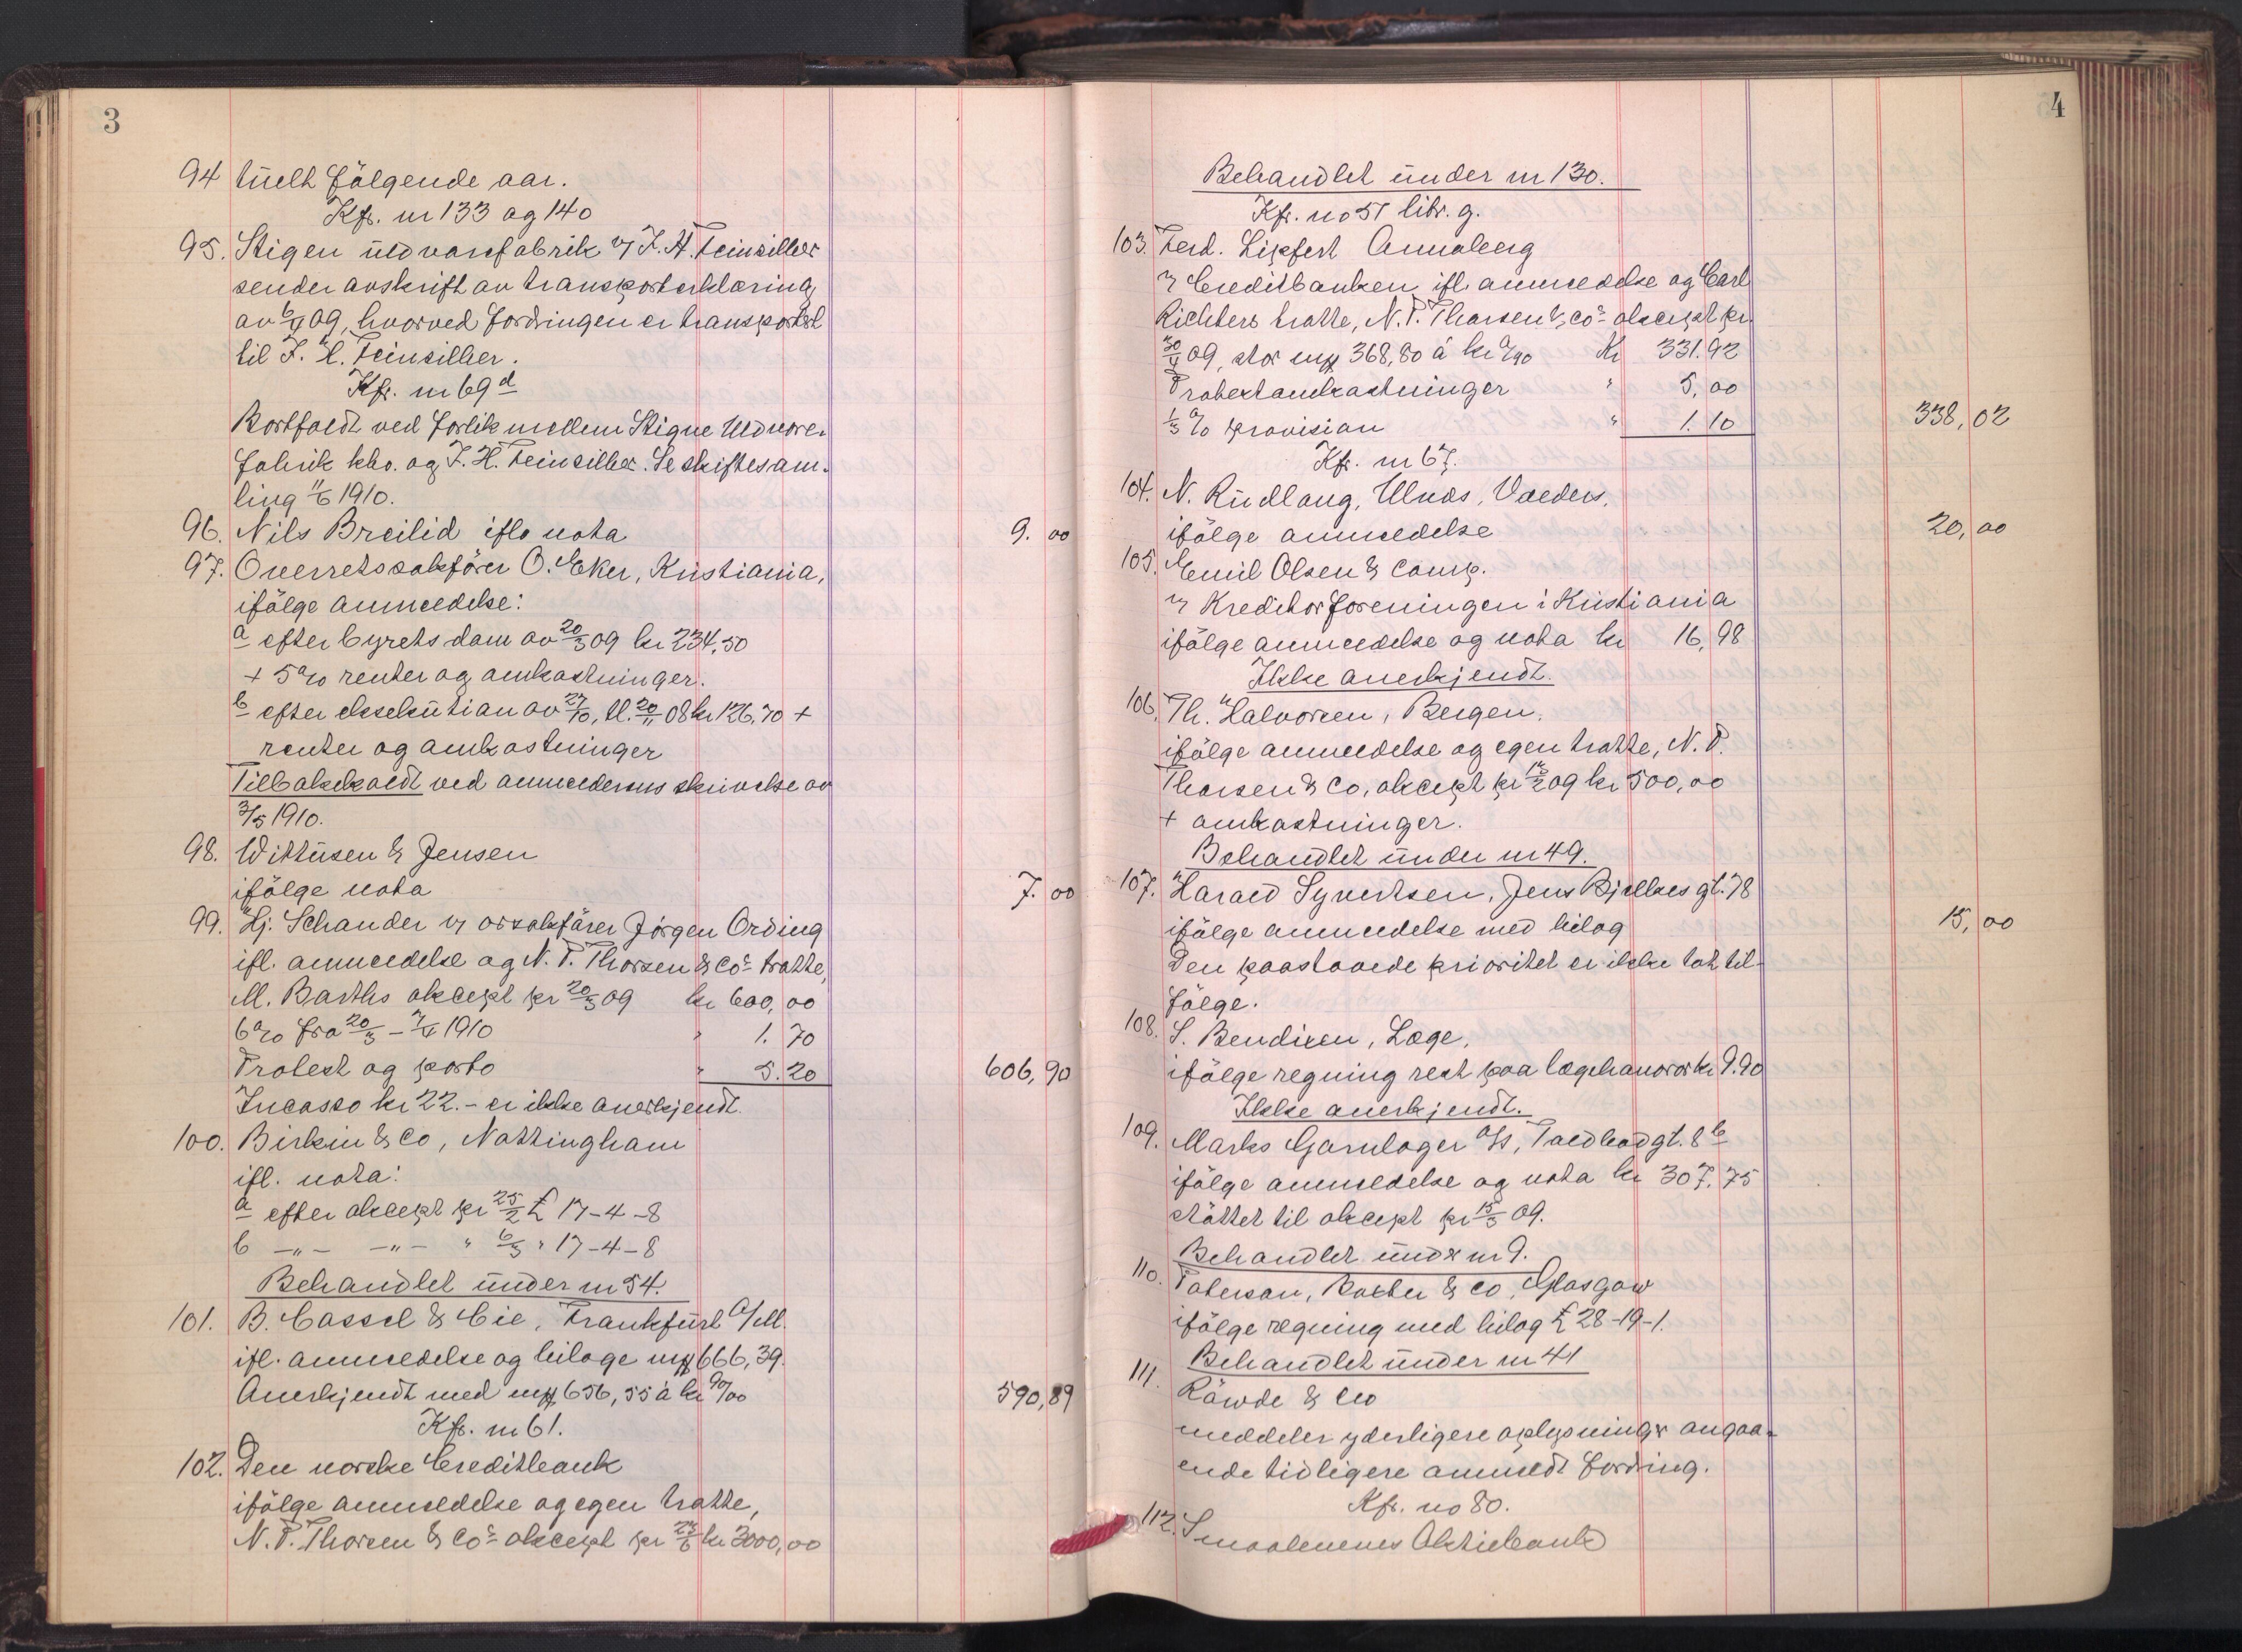 3
94 tuelt følgende aar.
Kfr. nr 133 og 140
95. Stigen uldvarefabrik v/ J. H. Feinsilber
sender avskrift av transporterklæring
av 6/4 09, hvorved fordringen er transportert
til J. H. Feinsilber.
Kfr. nr 69 d
Bortfaldt ved forlik mellem Stigne Uldvare-
fabrik kbo. og J. H. Feinsilber. Se skiftesam-
ling 11/6 1910.
96. Nils Breilid iflg nota 9. 00
97. Overretssakfører O. Eker, Kristiania,
ifølge anmeldelse:
a efter byrets dom av 20/3 09 kr 234,50
+ 5% renter og omkostninger.
b efter eksekution av 27/10, tl. 20/11 08 kr 126,70 +
renter og omkostninger
Tilbakekaldt ved anmelderens skrivelse av
3/5 1910.
98. Wittusen & Jensen
ifølge nota 7. 00
99. Hj. Schander v/ orsakfører Jørgen Ording
ifl. anmeldelse og N. P. Thorsen & Co's tratte,
M. Barths aksept pr 20/3 09 kr 600,00
6% fra 20/3 - 7/4 1910 " 1. 70
Protest og porto " 5.20 606,90
Incasso kr 22.- er ikke anerkjendt.
100. Birkin & Co, Nottingham
ifl. nota:
a efter aksept pr 25/2 £ 17-4-8
b -"- -"- " 6/3 " 17-4-8
Behandlet under nr 54.
101. B. Cassel & Cie, Frankfurt a/M.
ifl. anmeldelse og bilage mk 666,39.
Anerkjendt med mk 656,55 à kr 90/00 590,89
Kfr. nr 61.
102. Den norske Creditbank
ifølge anmeldelse og egen tratte,
N. P. Thorsen & Co's aksept pr 24/6 kr 3000,00
4
Behandlet under nr 130.
Kfr. no 51 litr. g.
103. Ferd. Lipfert Annaberg
v/ Creditbanken ifl. anmeldelse og Carl
Richters tratte, N. P. Thorsen & Co's aksept pr.
30/4 09, stor mk 368,80 à kr 0/90 Kr 331.92
Protestomkostninger " 5,00
1/3 % provision " 1.10 338,02
Kfr. nr 67.
104. N. Rudlang, Ulnes, Valdres,
ifølge anmeldelse 20,00
105. Emil Olsen & Comp.
v/ Kreditorforeningen i Kristiania
ifølge anmeldelse og nota kr 16,98
Ikke anerkjendt.
106. Th. Halvorsen, Bergen,
ifølge anmeldelse og egen tratte, N. P.
Thorsen & Co, aksept pr 12/2 09 kr 500,00
+ omkostninger.
Behandlet under nr 49.
107. Harald Syvertsen, Jens Bjelkes gt. 78
ifølge anmeldelse med bilag 15,00
Den paastaaede prioritet er ikke tat til-
følge.
108. S. Bendixen, Læge,
ifølge regning rest paa lægehonorar kr 9.90
Ikke anerkjendt.
109. Marks Garnlager A/s, Toldbodgt. 8 b
ifølge anmeldelse og nota kr 307.75
støttet til aksept pr 15/3 09.
Behandlet under nr 9.
110. Paterson, & Co, Glasgow
ifølge regning med bilag £ 28-19-1.
Behandlet under nr 41
111. Råwde & Co
meddeler yderligere oplysninger angaa-
ende tidligere anmeldt fordring.
Kfr. no 80.
112. Smaalenenes Aktiebank